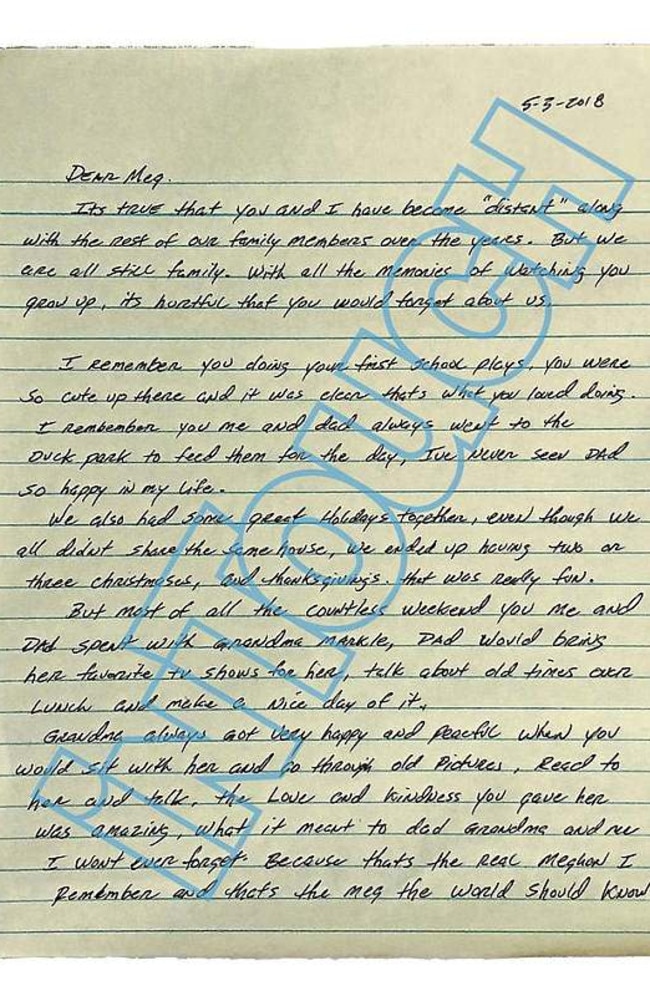 5-3-2018
Dear Meg.
Its true that you and I have become "distant" along
with the rest of our family members over the years. But we
are all still family. With all the memories of watching you
grow up, its hurtful that you would forget about us.
I remember you doing your first school plays, you were
so cute up there and it was clear thats what you loved doing.
I rembember you me and dad always went to the
Duck park to feed them for the day, Ive never seen DAD
so happy in my life.
We also had some great Holidays together, even though we
all didnt share the same house, we ended up having two or
three christmases, and thanksgivings. that was really fun.
But most of all the countless weekend you me and
DAD spent with grandma markle, DAD would bring
her favorite tv shows for her, talk about old times over
Lunch and make a nice day of it.
Grandma always got very happy and peaceful when you
would sit with her and go through old pictures, Read to
her and talk, the Love and kindness you gave her
was amazing, what it meant to dad grandma and me
I wont ever forget. Because thats the real Meghan I
Remember and thats the meg the world should know
INTOUCH